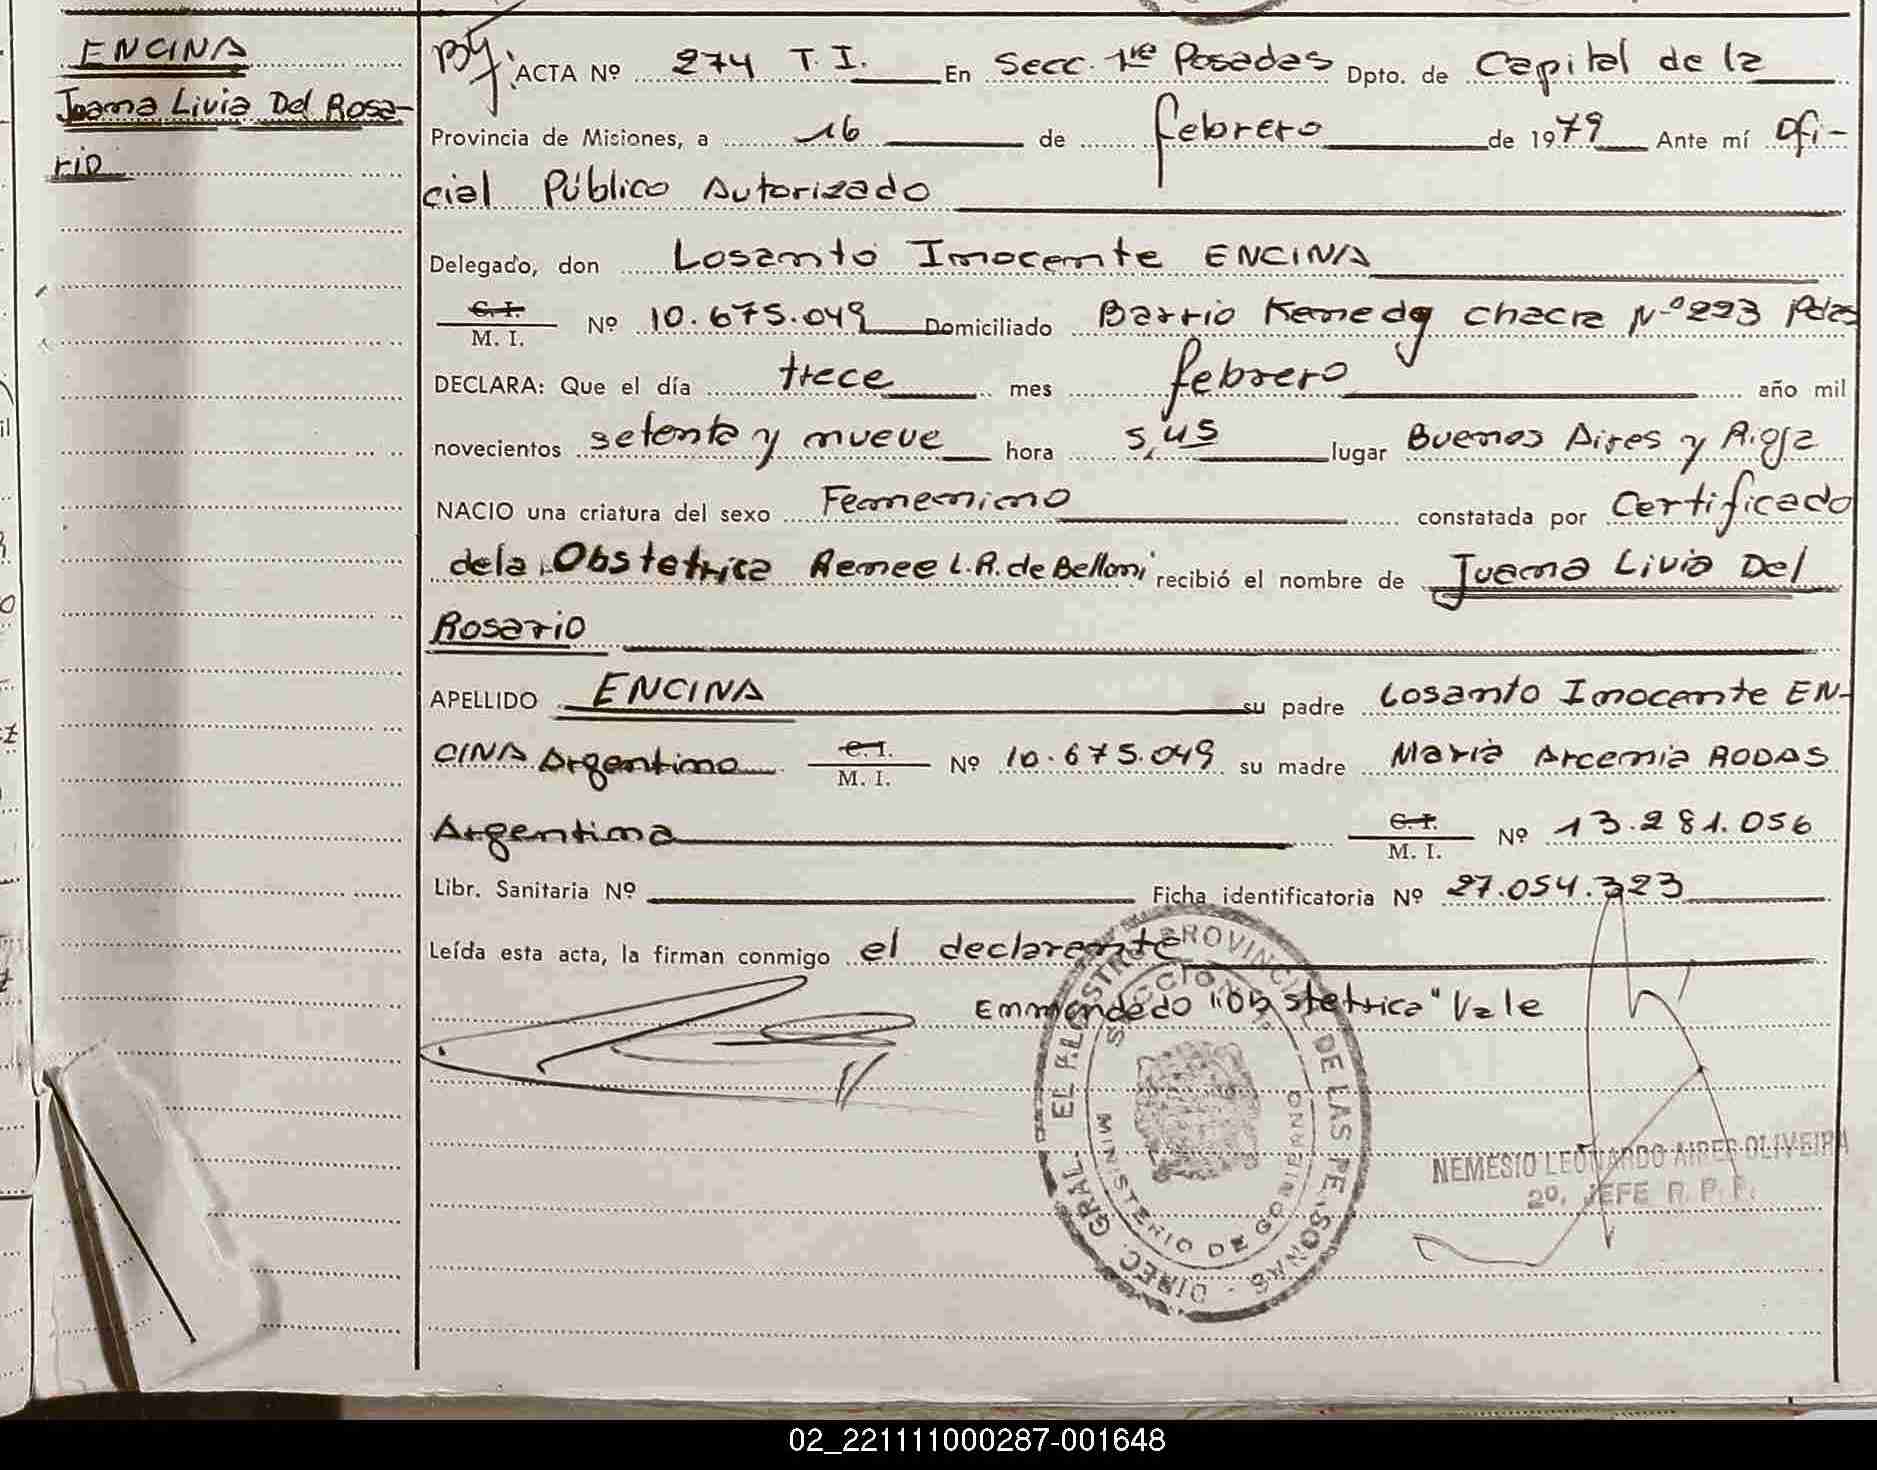 ENCINA
Juana Livia Del Rosa-
rio
ACTA Nº 274 T. I. En Secc. 1re Posadas Dpto. de Capital de la
Provincia de Misiones, a 16 de febrero de 1979 Ante mí Ofi-
cial Público Autorizado
Delegado, don Losanto Inocente ENCINA
C. I.
M. I. Nº 10.675.049 Domiciliado Barrio Kenedy chacra Nº 223 Pdas
DECLARA: Que el día trece mes febrero año mil
novecientos setenta y nueve hora 5,45 lugar Buenos Aires y Rioja
NACIO una criatura del sexo Femenino constatada por Certificado
de la Obstetrica Renee L.R. de Belloni recibió el nombre de Juana Livia Del
Rosario
APELLIDO ENCINA su padre Losanto Inocente EN-
CINA Argentino C. I. M. I. Nº 10.675.049 su madre Maria Arcenia RODAS
Argentina C. I. M. I. Nº 13.281.056
Libr. Sanitaria Nº Ficha identificatoria Nº 27.054.323
Leída esta acta, la firman conmigo el declarante
Emmendado "Obstetrica" Vale
DIREC. GRAL. DE LAS PERSONAS
MINISTERIO DE GOBIERNO
NEMESIO LEONARDO AIRES OLIVEIRA
2º. JEFE R. P. P.
02_221111000287-001648